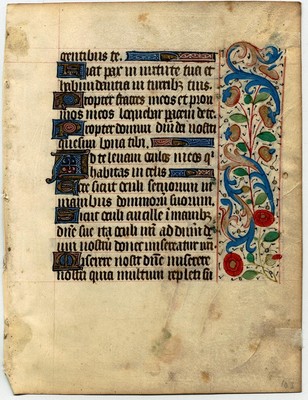 gentibus te.
Fiat pax in virtute tua et
habundantia in turribz tuis.
Propter fratres meos et proxi
mos meos loquebar pacem de te.
Propter domum dñi dei nostri
quesiui bona tibi.
Ad te leuaui oculos meos q̄
habitas in celis
Ecce sicut oculi seruorum in
manibus dominorum suorum.
Sicut oculi ancille ī manibz
dñe sue ita oculi nr̄i ad dñm de
um nostrū donec misereatur nr̄i
Miserere nostri dñe miserere
nostri quia multum repleti su